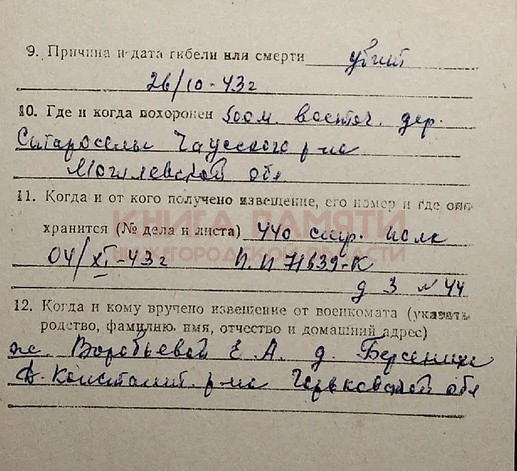 9. Причина и дата гибели или смерти убит
26/10-43г
10. Где и когда похоронен 500м восточ. дер.
Староселы Чаусского р-на
Могилевской обл
11. Когда и от кого получено извещение, его номер и где он
хранится (№ дела и листа) 440 стр. полк
04/XI-43г П.П 71639-К
д 3 № 44
12. Когда и кому вручено извещение от военкомата (указать
родство, фамилию, имя, отчество и домашний адрес)
ж. Воробьевой Е. А. д. Берсениха
Б. Констант. р-на Горьковской обл
КНИГА ПАМЯТИ
НИЖЕГОРОДСКОЙ ОБЛАСТИ